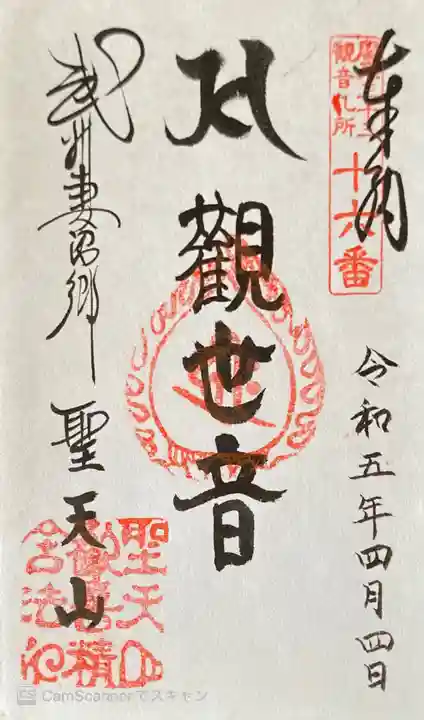 奉拝
観音札所
十六番
令和五年四月四日
觀世音
武州妻沼郷
聖天山
聖天山
歓喜精
舎法印
CS CamScannerでスキャン